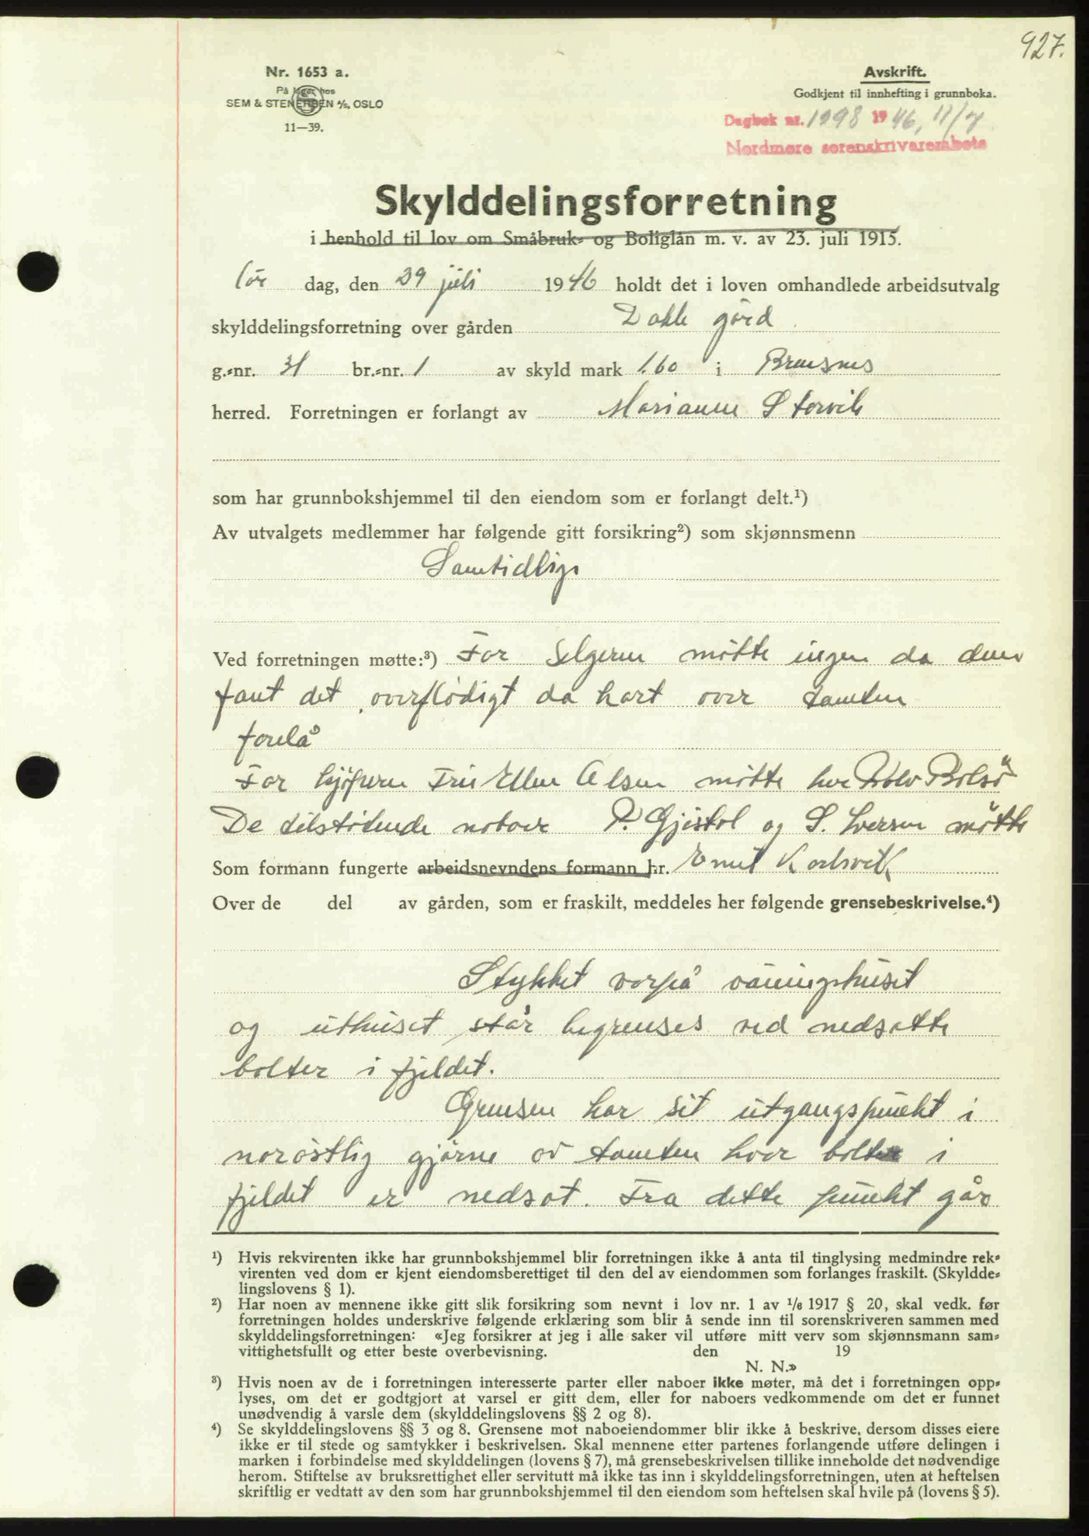 927.
Nr. 1653 a.
På lager hos
SEM & STENERSEN A/S, OSLO
11—39.
Avskrift.
Godkjent til innhefting i grunnboka.
Dagbok nr. 1998 1946, 11/7
Nordmøre sorenskriverembete
Skylddelingsforretning
i henhold til lov om Småbruk- og Boliglån m. v. av 23. juli 1915.
Lør dag, den 29 juli 1946 holdt det i loven omhandlede arbeidsutvalg
skylddelingsforretning over gården Dakle gård
g.-nr. 31 br.-nr. 1 av skyld mark 1.60 i Bremsnes
herred. Forretningen er forlangt av Marianne Storvik
som har grunnbokshjemmel til den eiendom som er forlangt delt.¹)
Av utvalgets medlemmer har følgende gitt forsikring²) som skjønnsmenn
Samtidlige
Ved forretningen møtte:³) For Selgeren møtte ingen da denne
fant det overflødigt da kart over tomten
forelå
For kjøperen Fru Ellen Olsen møtte herr Bolsø
De tilstøtende naboer P. Gjistøl og S. Iversen møtte
Som formann fungerte arbeidsnevndens formann hr. Knut Karlsvik
Over de del av gården, som er fraskilt, meddeles her følgende grensebeskrivelse.⁴)
Stykket vorpå våningshuset
og uthuset står begrenses ved nedsatte
bolter i fjeldet.
Grensen har sit utgangspunkt i
norøstlig gjørne av tomten hvor bolten i
fjeldet er nedsat. Fra dette punkt går
¹) Hvis rekvirenten ikke har grunnbokshjemmel blir forretningen ikke å anta til tinglysing medmindre rek-
virenten ved dom er kjent eiendomsberettiget til den del av eiendommen som forlanges fraskilt. (Skyldde-
lingslovens § 1).
²) Har noen av mennene ikke gitt slik forsikring som nevnt i lov nr. 1 av 1/6 1917 § 20, skal vedk. før
forretningen holdes underskrive følgende erklæring som blir å sende inn til sorenskriveren sammen med
skylddelingsforretningen: «Jeg forsikrer at jeg i alle saker vil utføre mitt verv som skjønnsmann sam-
vittighetsfullt og etter beste overbevisning. den 19
N. N.»
³) Hvis noen av de i forretningen interesserte parter eller naboer ikke møter, må det i forretningen opp-
lyses, om det er godtgjort at varsel er gitt dem, eller for naboers vedkommende om det er funnet
unødvendig å varsle dem (skylddelingslovens §§ 2 og 8).
⁴) Se skylddelingslovens §§ 3 og 8. Grensene mot naboeiendommer blir ikke å beskrive, dersom disses eiere
ikke er til stede og samtykker i beskrivelsen. Skal mennene etter partenes forlangende utføre delingen i
marken i forbindelse med skylddelingen (lovens § 7), må grensebeskrivelsen tillike inneholde det nødvendige
herom. Stiftelse av bruksrettighet eller servitutt må ikke tas inn i skylddelingsforretningen, uten at heftelsen
skriftlig er vedtatt av den som har grunnbokshjemmel til den eiendom som heftelsen skal hvile på (lovens § 5).